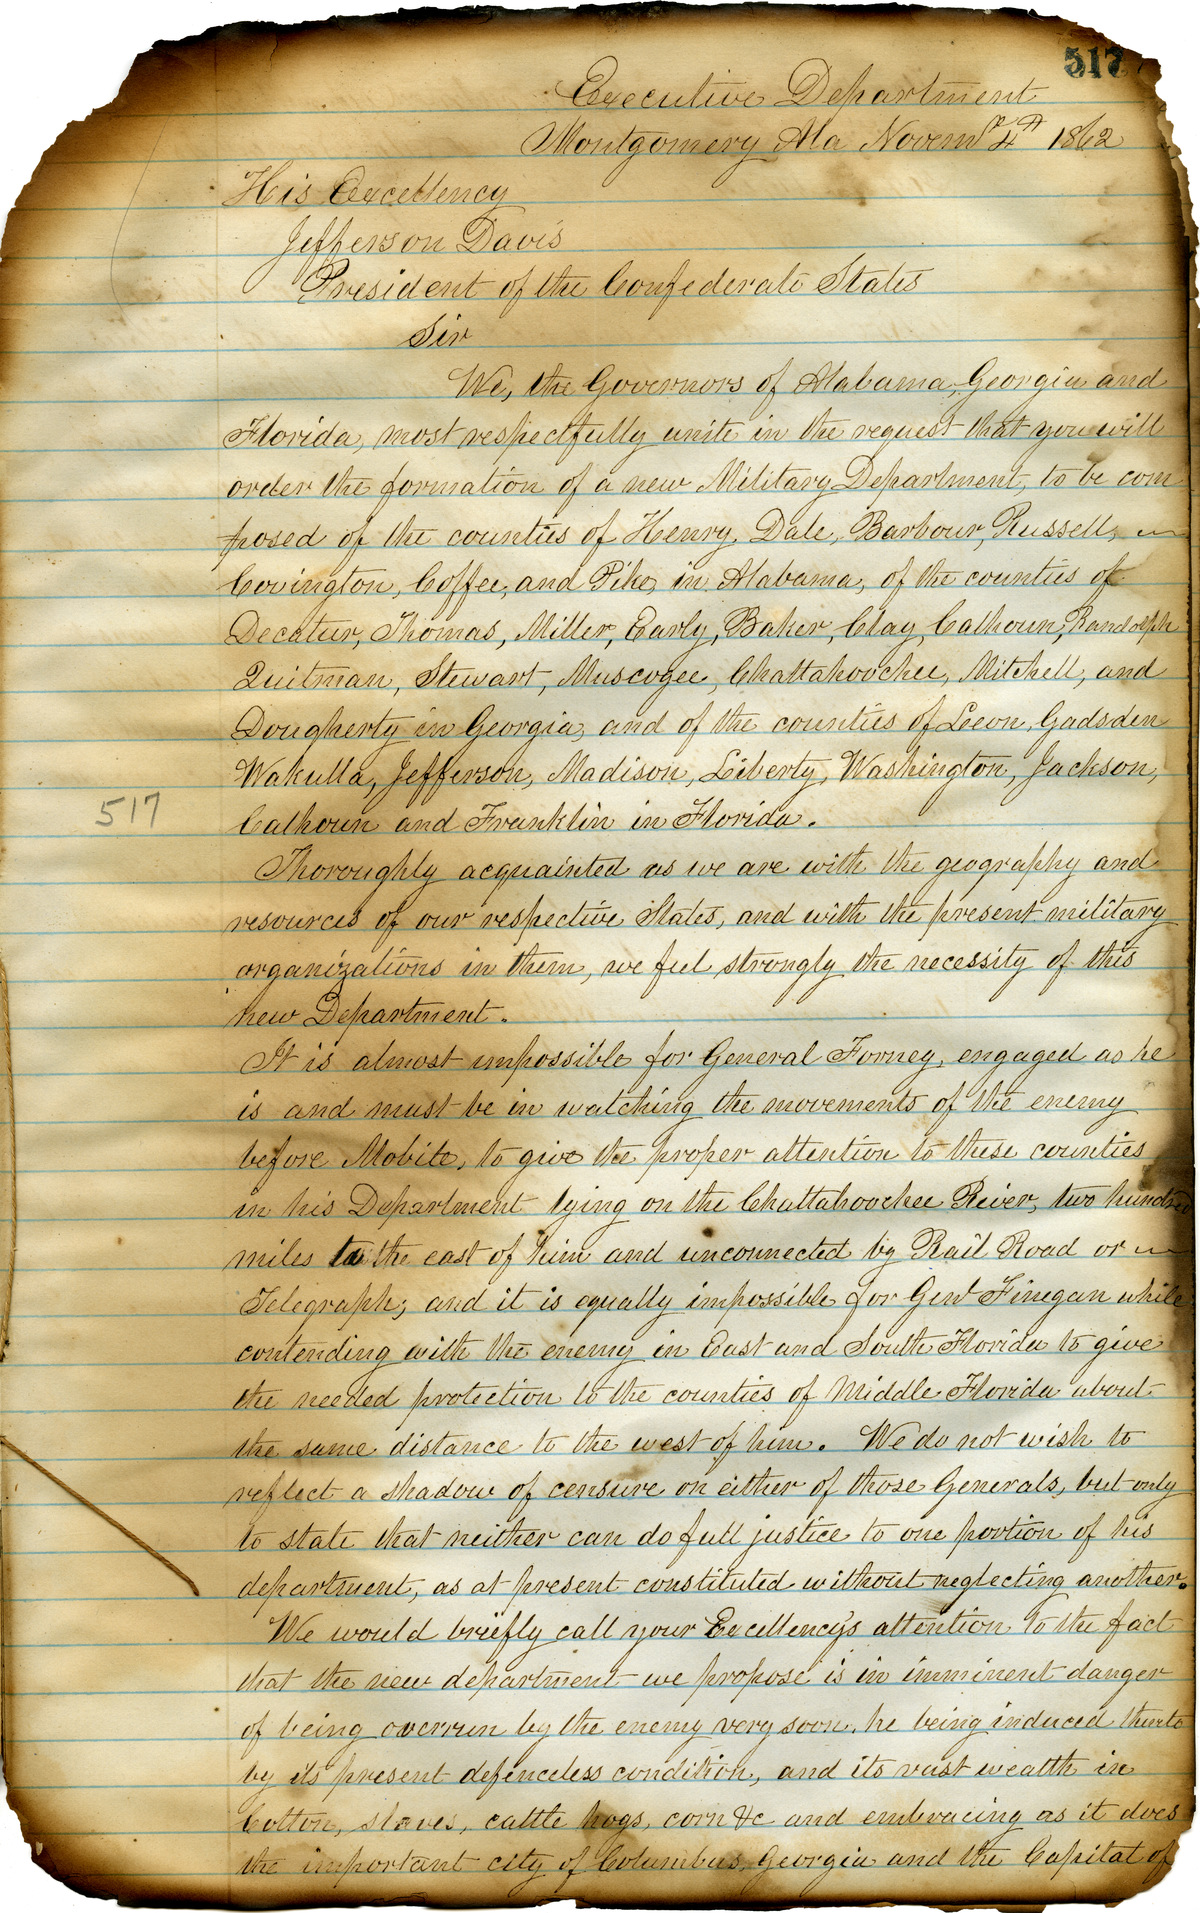 517
Executive Department
Montgomery Ala Novemr 4th 1862
His Excellency
Jefferson Davis
President of the Confederate States
Sir
We, the Governors of Alabama, Georgia and
Florida, most respectfully unite in the request that you will
order the formation of a new Military Department, to be com
posed of the counties of Henry, Dale, Barbour, Russell,
Covington, Coffee, and Pike, in Alabama, of the counties of
Decatur, Thomas, Miller, Early, Baker, Clay, Calhoun, Randolph
Quitman, Stewart, Muscogee, Chattahoochee, Mitchell, and
Dougherty in Georgia, and of the counties of Leon, Gadsden
Wakulla, Jefferson, Madison, Liberty, Washington, Jackson,
517
Calhoun and Franklin in Florida.
Thoroughly acquainted as we are with the geography and
resources of our respective States, and with the present military
organizations in them, we feel strongly the necessity of this
new Department.
It is almost impossible for General Forney, engaged as he
is and must be in watching the movements of the enemy
before Mobile, to give the proper attention to these counties
in his Department lying on the Chattahoochee River, two hundred
miles to the east of him and unconnected by Rail Road or
Telegraph; and it is equally impossible for Genl Finegan while
contending with the enemy in East and South Florida to give
the needed protection to the counties of Middle Florida about
the same distance to the west of him. We do not wish to
reflect a shadow of censure on either of those Generals, but only
to state that neither can do full justice to one portion of his
department, as at present constituted without neglecting another.
We would briefly call your Excellency's attention to the fact
that the new department we propose is in imminent danger
of being overrun by the enemy very soon, he being induced thereto
by its present defenceless condition, and its vast wealth in
Cotton, slaves, cattle hogs, corn &c and embracing as it does
the important city of Columbus, Georgia and the Capital of